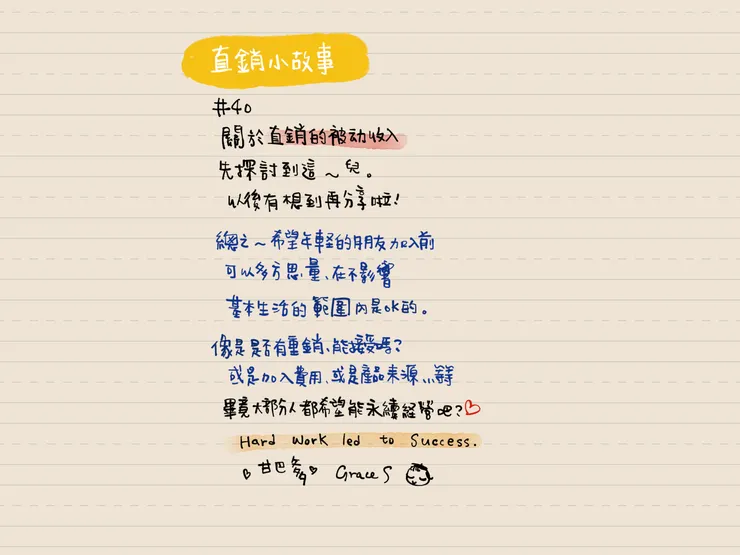 直銷小故事
#40
關於直銷的被动收入
先探討到這～兒。
以後有想到再分享啦！
總之～希望年輕的朋友加入前
可以多方思量、在不影響
基本生活的範圍內是ok的。
像是是否有重銷、能接受嗎？
或是加入費用、或是產品來源...等等
畢竟大部分人都希望能永續經營吧？
Hard work led to Success.
甘巴爹 Grace S